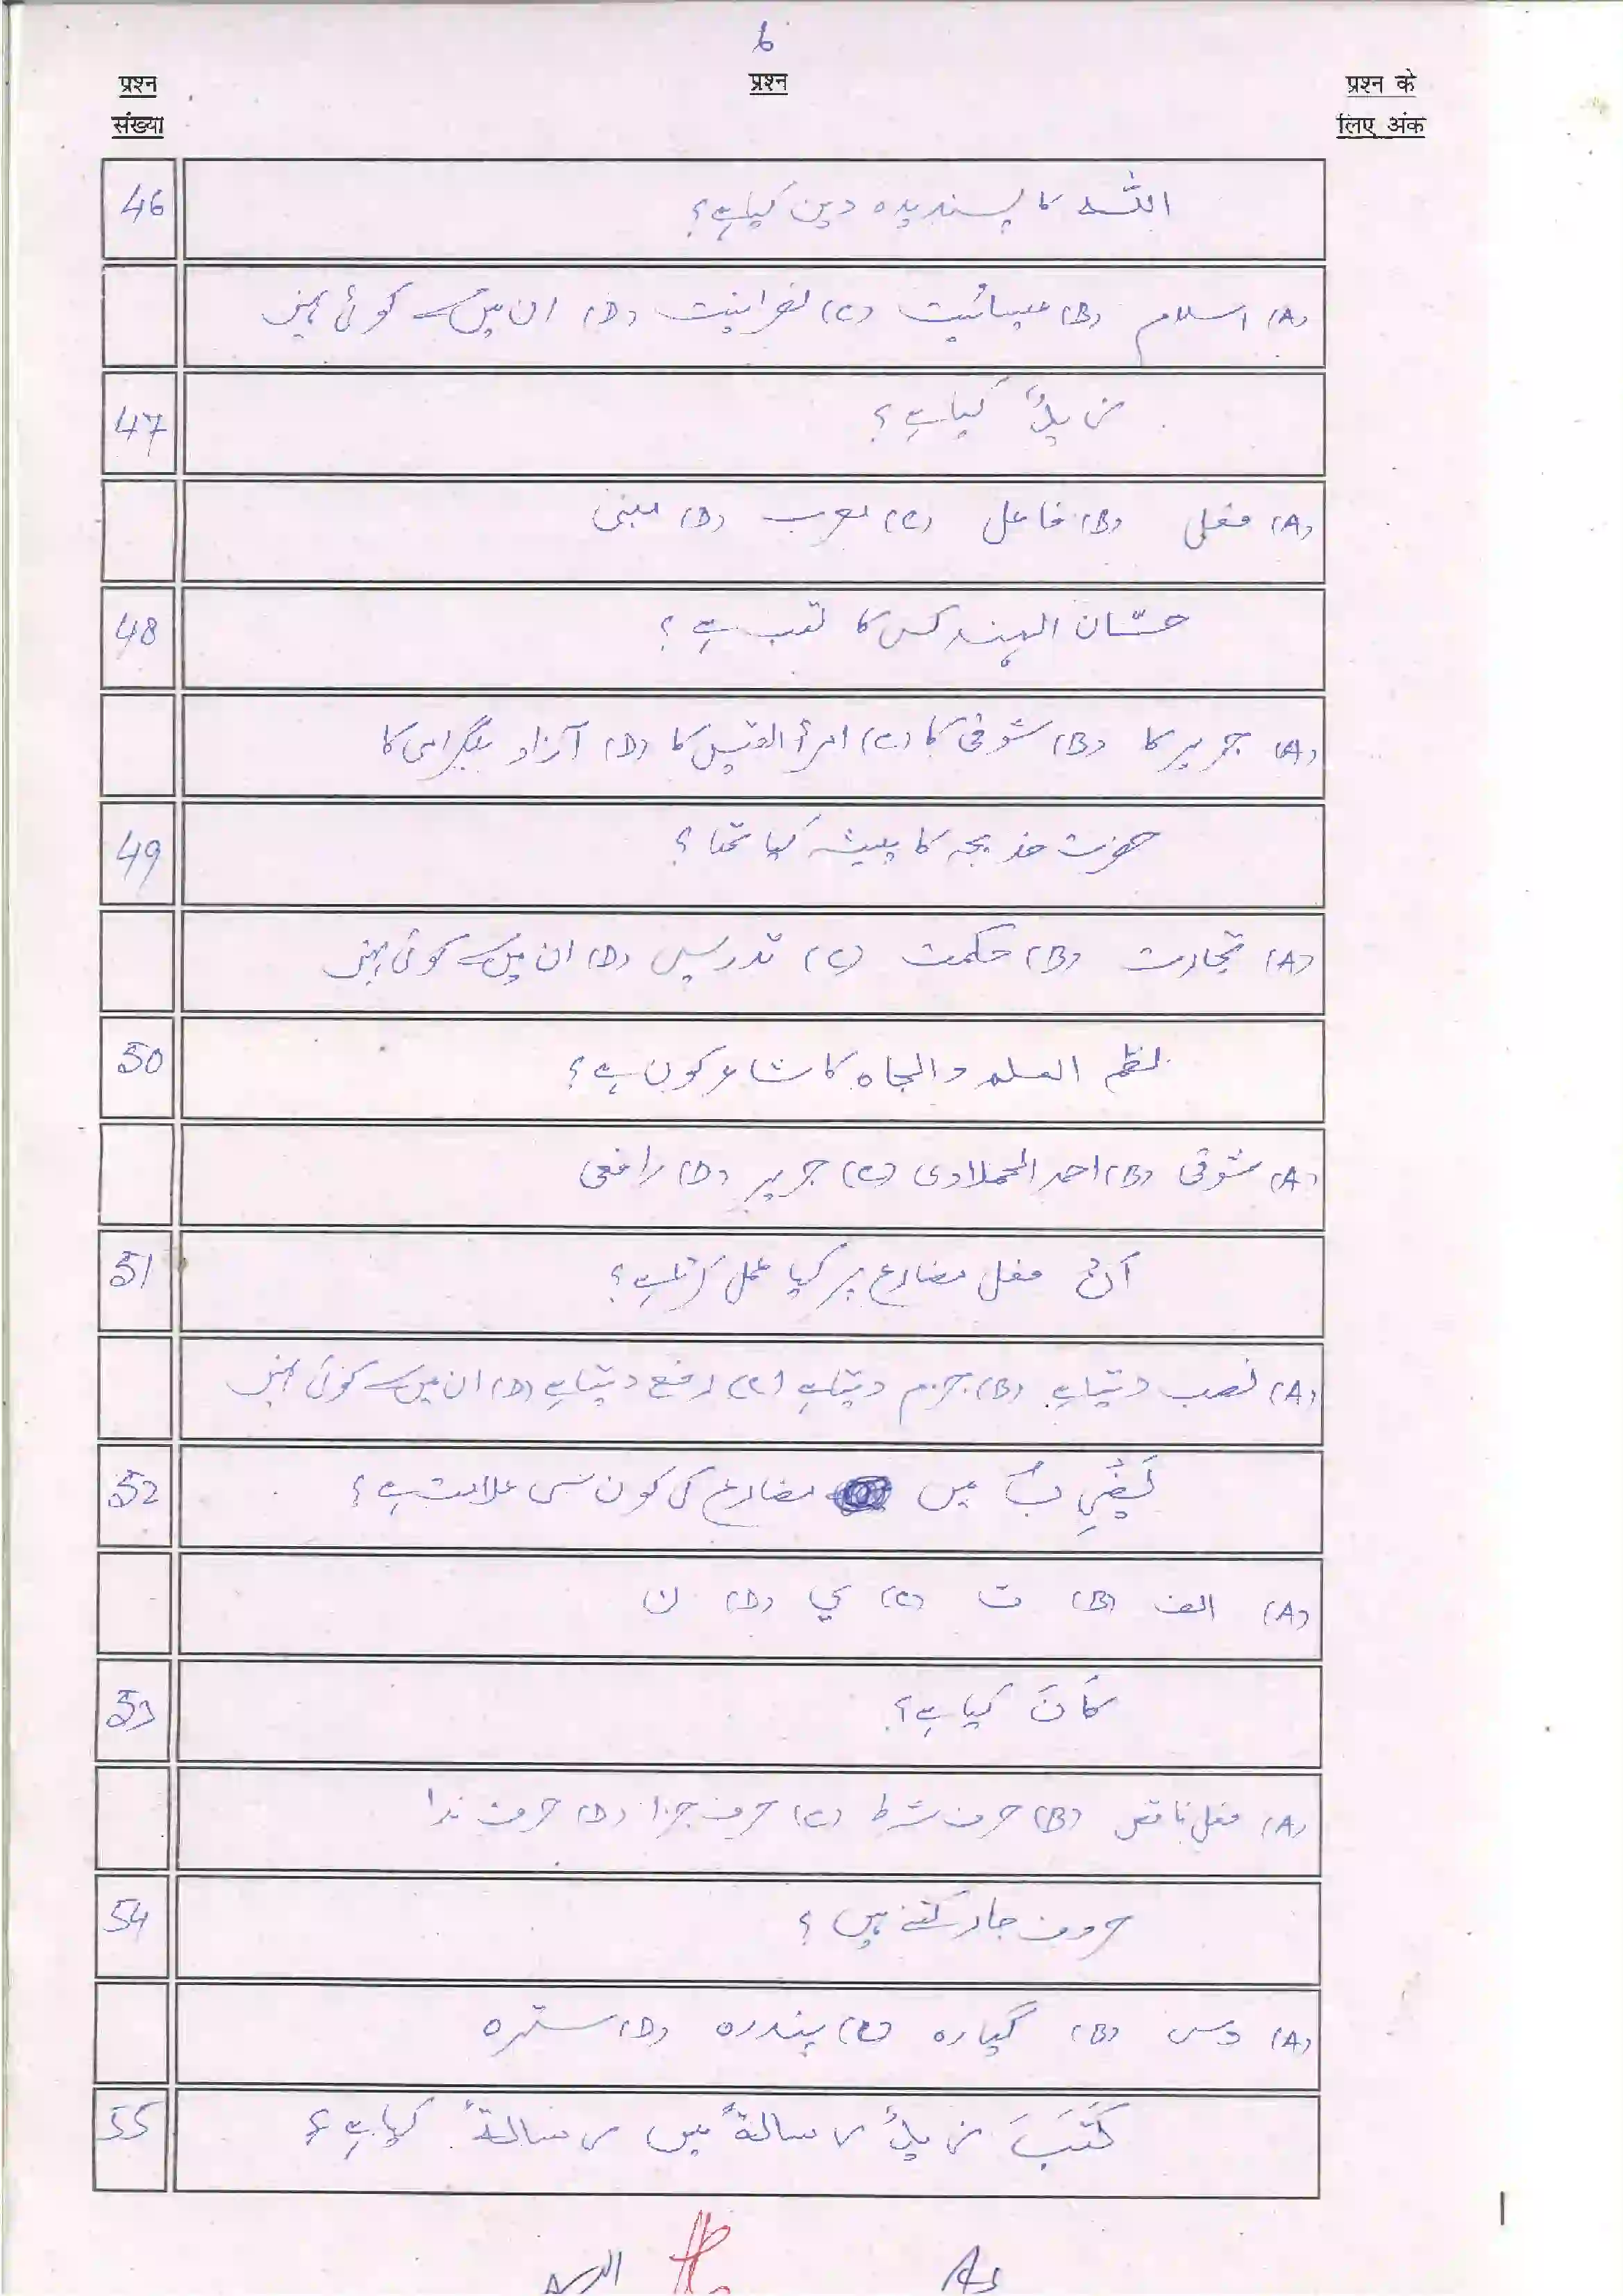 6
प्रश्न संख्या
प्रश्न
प्रश्न के लिए अंक
46
اللہ کا پسندیدہ دین کیا ہے؟
(A) اسلام (B) عیسائیت (C) نصرانیت (D) ان میں سے کوئی نہیں
47
زیدٌ کیا ہے؟
(A) فعل (B) فاعل (C) معرب (D) مبنی
48
حسّان الہند کس کا لقب ہے؟
(A) جریر کا (B) شوقی کا (C) امرأ القیس کا (D) آزاد بلگرامی کا
49
حضرت خدیجہ کا پیشہ کیا تھا؟
(A) تجارت (B) حکمت (C) تدریس (D) ان میں سے کوئی نہیں
50
نظم العلم والجاہ کا شاعر کون ہے؟
(A) شوقی (B) احمد المحلاوی (C) جریر (D) رافعی
51
أنْ فعل مضارع پر کیا عمل کرتا ہے؟
(A) نصب دیتا ہے (B) جزم دیتا ہے (C) رفع دیتا ہے (D) ان میں سے کوئی نہیں
52
یَضْرِبُ میں مضارع کی کون سی علامت ہے؟
(A) الف (B) ت (C) ي (D) ن
53
کَانَ کیا ہے؟
(A) فعل ناقص (B) حرف شرط (C) حرف جزا (D) حرف ندا
54
حروف جار کتنے ہیں؟
(A) دس (B) گیارہ (C) پندرہ (D) سترہ
55
کَتَبَ زیدٌ رسالةً میں رسالةً کیا ہے؟